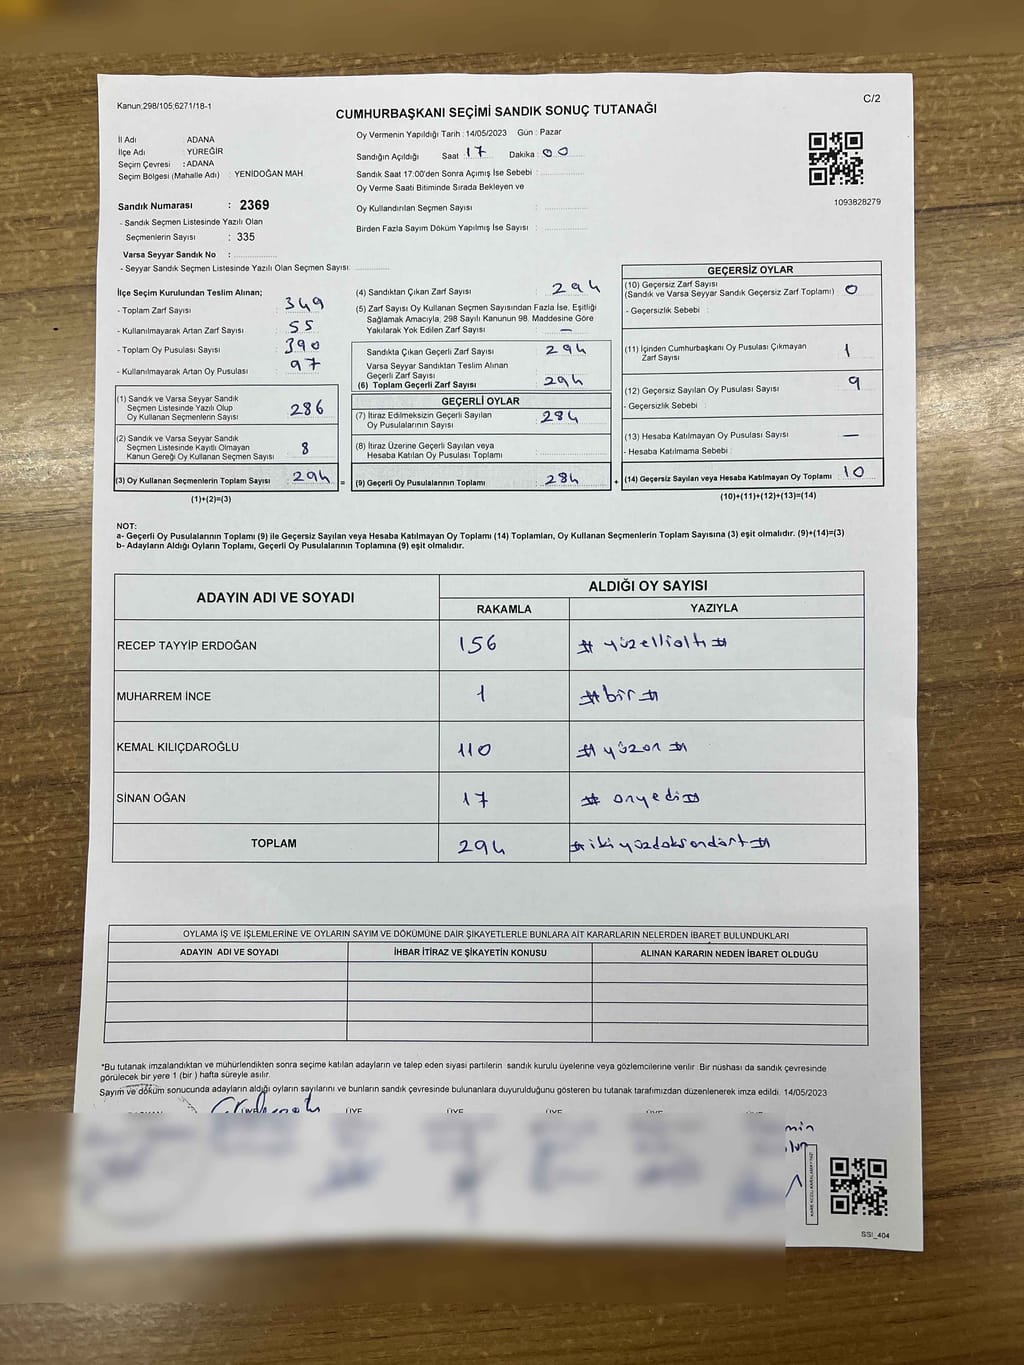 Kanun;298/105;6271/18-1
C/2
CUMHURBAŞKANI SEÇİMİ SANDIK SONUÇ TUTANAĞI
İl Adı ADANA
İlçe Adı : YÜREĞİR
Seçim Çevresi : ADANA
Seçim Bölgesi (Mahalle Adı) : YENİDOĞAN MAH.
Sandık Numarası : 2369
- Sandık Seçmen Listesinde Yazılı Olan
Seçmenlerin Sayısı : 335
Varsa Seyyar Sandık No :
- Seyyar Sandık Seçmen Listesinde Yazılı Olan Seçmen Sayısı
Oy Vermenin Yapıldığı Tarih : 14/05/2023 Gün : Pazar
Sandığın Açıldığı Saat : 17 Dakika : 00
Sandık Saat 17:00'den Sonra Açımış İse Sebebi :
Oy Verme Saati Bitiminde Sırada Bekleyen ve
Oy Kullandırılan Seçmen Sayısı :
Birden Fazla Sayım Döküm Yapılmış İse Sayısı :
1093828279
İlçe Seçim Kurulundan Teslim Alınan;
- Toplam Zarf Sayısı : 349
- Kullanılmayarak Artan Zarf Sayısı : 55
- Toplam Oy Pusulası Sayısı : 390
- Kullanılmayarak Artan Oy Pusulası : 97
(1) Sandık ve Varsa Seyyar Sandık
Seçmen Listesinde Yazılı Olup
Oy Kullanan Seçmenlerin Sayısı : 286
(2) Sandık ve Varsa Seyyar Sandık
Seçmen Listesinde Kayıtlı Olmayan
Kanun Gereği Oy Kullanan Seçmen Sayısı : 8
(3) Oy Kullanan Seçmenlerin Toplam Sayısı : 294 =
(1)+(2)=(3)
(4) Sandıktan Çıkan Zarf Sayısı : 294
(5) Zarf Sayısı Oy Kullanan Seçmen Sayısından Fazla İse, Eşitliği
Sağlamak Amacıyla, 298 Sayılı Kanunun 98. Maddesine Göre
Yakılarak Yok Edilen Zarf Sayısı : —
Sandıkta Çıkan Geçerli Zarf Sayısı : 294
Varsa Seyyar Sandıktan Teslim Alınan
Geçerli Zarf Sayısı
(6) Toplam Geçerli Zarf Sayısı : 294
GEÇERLİ OYLAR
(7) İtiraz Edilmeksizin Geçerli Sayılan
Oy Pusulalarının Sayısı : 284
(8) İtiraz Üzerine Geçerli Sayılan veya
Hesaba Katılan Oy Pusulası Toplamı :
(9) Geçerli Oy Pusulalarının Toplamı : 284 +
GEÇERSİZ OYLAR
(10) Geçersiz Zarf Sayısı
(Sandık ve Varsa Seyyar Sandık Geçersiz Zarf Toplamı) : 0
- Geçersizlik Sebebi :
(11) İçinden Cumhurbaşkanı Oy Pusulası Çıkmayan
Zarf Sayısı : 1
(12) Geçersiz Sayılan Oy Pusulası Sayısı : 9
- Geçersizlik Sebebi :
(13) Hesaba Katılmayan Oy Pusulası Sayısı : —
- Hesaba Katılmama Sebebi :
(14) Geçersiz Sayılan veya Hesaba Katılmayan Oy Toplamı : 10
(10)+(11)+(12)+(13)=(14)
NOT:
a- Geçerli Oy Pusulalarının Toplamı (9) ile Geçersiz Sayılan veya Hesaba Katılmayan Oy Toplamı (14) Toplamları, Oy Kullanan Seçmenlerin Toplam Sayısına (3) eşit olmalıdır. (9)+(14)=(3)
b- Adayların Aldığı Oyların Toplamı, Geçerli Oy Pusulalarının Toplamına (9) eşit olmalıdır.
ADAYIN ADI VE SOYADI ALDIĞI OY SAYISI
RAKAMLA YAZIYLA
RECEP TAYYİP ERDOĞAN 156 # yüzellialtı #
MUHARREM İNCE 1 #bir#
KEMAL KILIÇDAROĞLU 110 # yüzon #
SİNAN OĞAN 17 # onyedi #
TOPLAM 294 #ikiyüzdoksandört#
OYLAMA İŞ VE İŞLEMLERİNE VE OYLARIN SAYIM VE DÖKÜMÜNE DAİR ŞİKAYETLERLE BUNLARA AİT KARARLARIN NELERDEN İBARET BULUNDUKLARI
ADAYIN ADI VE SOYADI İHBAR İTİRAZ VE ŞİKAYETİN KONUSU ALINAN KARARIN NEDEN İBARET OLDUĞU
*Bu tutanak imzalandıktan ve mühürlendikten sonra seçime katılan adayların ve talep eden siyasi partilerin sandık kurulu üyelerine veya gözlemcilerine verilir. Bir nüshası da sandık çevresinde
görülecek bir yere 1 (bir ) hafta süreyle asılır.
Sayım ve döküm sonucunda adayların aldığı oyların sayılarını ve bunların sandık çevresinde bulunanlara duyurulduğunu gösteren bu tutanak tarafımızdan düzenlenerek imza edildi. 14/05/2023
ÜYE ÜYE ÜYE ÜYE ÜYE
SSİ_404